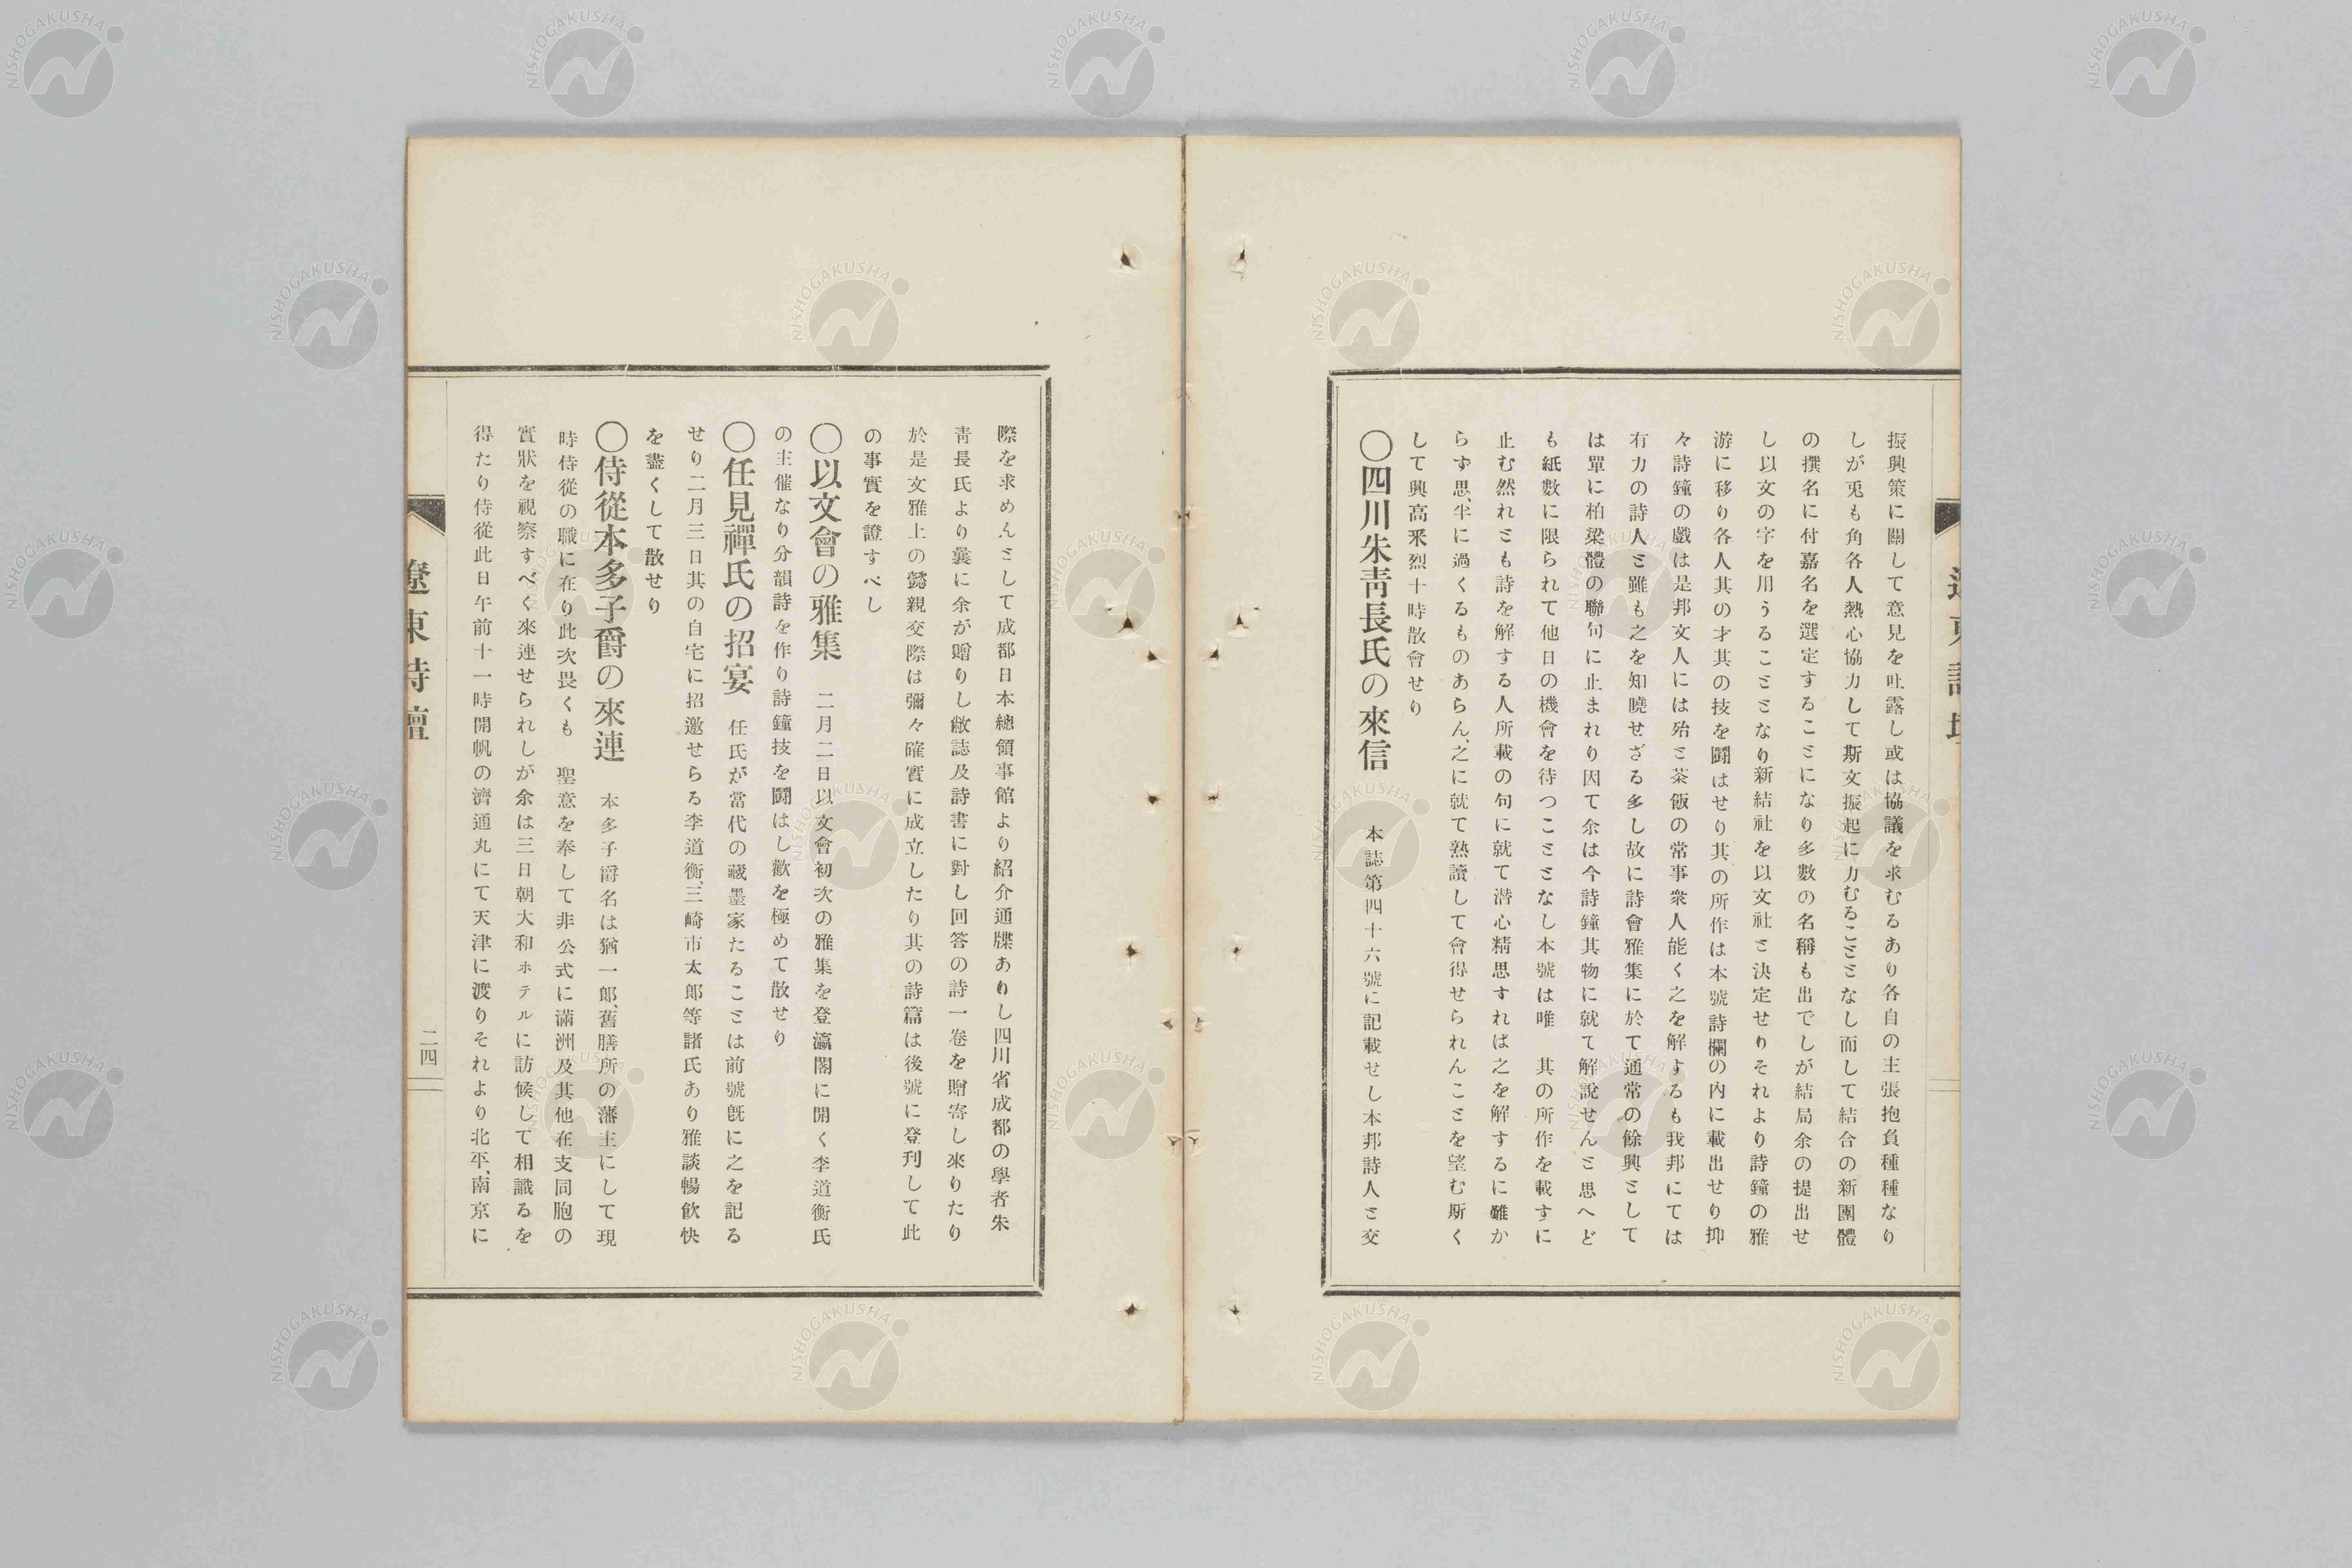 振興策に關して意見を吐露し或は協議を求むるあり各自の主張抱負種種なり
しが兎も角各人熱心協力して斯文振起に力むることとなし而して結合の新團體
の撰名に付嘉名を選定することになり多數の名稱も出でしが結局余の提出せ
し以文の字を用うることとなり新結社を以文社と決定せりそれより詩鐘の雅
游に移り各人其の才其の技を鬪はせり其の所作は本號詩欄の內に載出せり抑
々詩鐘の戲は是邦文人には殆と茶飯の常事衆人能く之を解するも我邦にては
有力の詩人と雖も之を知曉せざる多し故に詩會雅集に於て通常の餘興として
は單に柏梁體の聯句に止まれり因て余は今詩鐘其物に就て解說せんと思へど
も紙數に限られて他日の機會を待つことゝなし本號は唯　其の所作を載すに
止む然れとも詩を解する人所載の句に就て潜心精思すれば之を解するに難か
らず思、半に過くるものあらん、之に就て熟讀して會得せられんことを望む斯く
して興高釆烈十時散會せり
〇四川朱靑長氏の來信　本誌第四十六號に記載せし本邦詩人と交
際を求めんとして成都日本總領事館より紹介通牒ありし四川省成都の學者朱
靑長氏より曩に余が贈りし敝誌及詩書に對し回答の詩一卷を贈寄し來りたり
於是文雅上の懿親交際は彌々確實に成立したり其の詩篇は後號に登刊して此
の事實を證すべし
〇以文會の雅集　二月二日以文會初次の雅集を登瀛閣に開く李道衡氏
の主催なり分韻詩を作り詩鐘技を鬪はし歡を極めて散せり
〇任見禪氏の招宴　任氏が當代の藏墨家たることは前號旣に之を記る
せり二月三日其の自宅に招邀せらる李道衡、三崎市太郎等諸氏あり雅談暢飮快
を盡くして散せり
〇侍從本多子爵の來連　本多子爵名は猶一郎、舊膳所の藩主にして現
時侍從の職に在り此次畏くも　聖意を奉して非公式に滿洲及其他在支同胞の
實狀を視察すべく來連せられしが余は三日朝大和ホテルに訪候して相識るを
得たり侍從此日午前十一時開帆の濟通丸にて天津に渡りそれより北平、南京に
遼東詩壇
二四
NISHOGAKUSHA